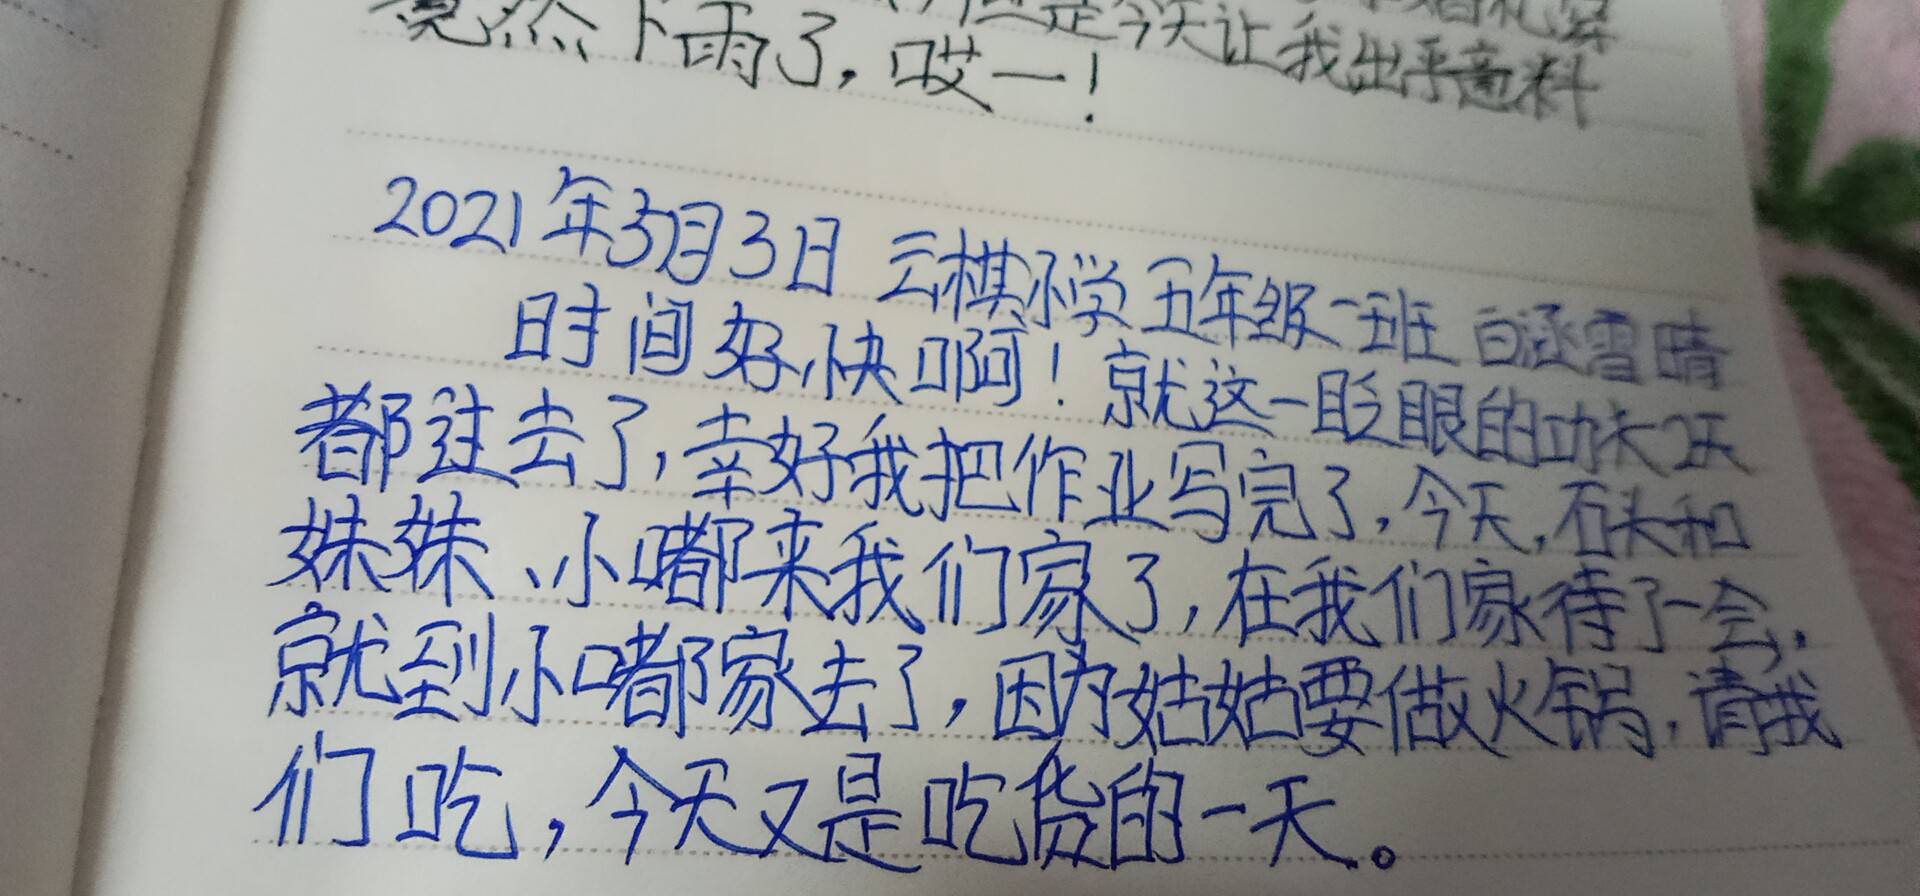 是今天让我出乎意料
竟然下雨了，哎一！
2021年3月3日 云棋小学五年级一班 白涵雪 晴
时间好快啊！就这一眨眼的功夫2天
都过去了，幸好我把作业写完了，今天，石头和
妹妹、小嘟来我们家了，在我们家待了一会，
就到小嘟家去了，因为姑姑要做火锅，请我
们吃，今天又是吃货的一天。